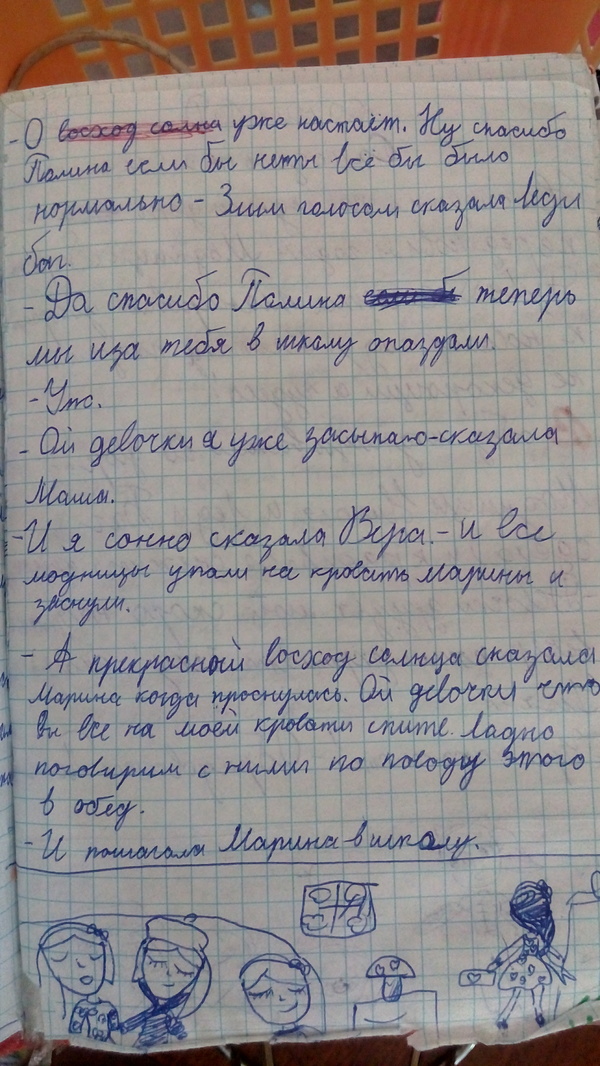 - О восход солна уже настаёт. Ну спасибо
Палина если бы неты всё бы было
нормально - Злим голосом сказала Леди
баг.
- Да спасибо Палина если б теперь
мы иза тебя в шкалу опаздали.
- Ужс.
- Ой девочки я уже засыпаю-сказала
Маша.
- И я сонно сказала Вера. - и все
модницы упали на кровать марины и
заснули.
- А прекрасной восход солнца сказала
Марина когда проснулась. Ой девочки что
вы все на моей кровати спите. Ладно
поговирим с ними по поводу этого
в обед.
- И пошагала Марина в шкалу.